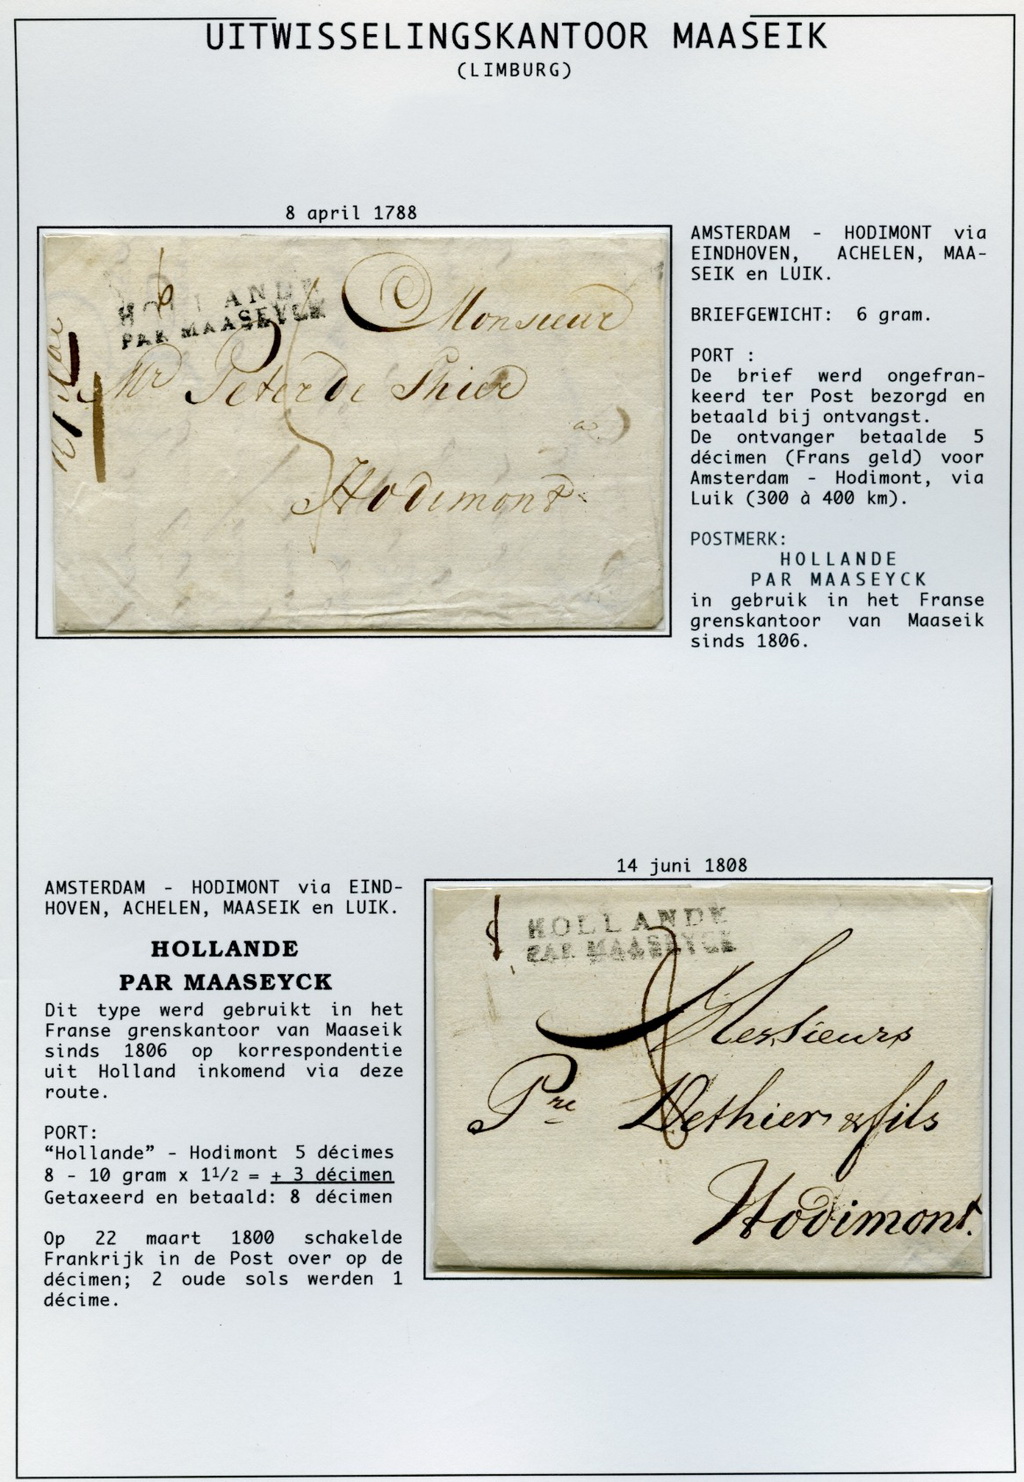 UITWISSELINGSKANTOOR MAASEIK
(LIMBURG)
8 april 1788
HOLLANDE
PAR MAASEYCK
Monsieur
Mr Peter de Thier
Hodimont
AMSTERDAM - HODIMONT via
EINDHOVEN, ACHELEN, MAA-
SEIK en LUIK.
BRIEFGEWICHT: 6 gram.
PORT :
De brief werd ongefran-
keerd ter Post bezorgd en
betaald bij ontvangst.
De ontvanger betaalde 5
décimen (Frans geld) voor
Amsterdam - Hodimont, via
Luik (300 à 400 km).
POSTMERK:
HOLLANDE
PAR MAASEYCK
in gebruik in het Franse
grenskantoor van Maaseik
sinds 1806.
AMSTERDAM - HODIMONT via EIND-
HOVEN, ACHELEN, MAASEIK en LUIK.
HOLLANDE
PAR MAASEYCK
Dit type werd gebruikt in het
Franse grenskantoor van Maaseik
sinds 1806 op korrespondentie
uit Holland inkomend via deze
route.
PORT:
“Hollande” - Hodimont 5 décimes
8 - 10 gram x 1 1/2 = + 3 décimen
Getaxeerd en betaald: 8 décimen
Op 22 maart 1800 schakelde
Frankrijk in de Post over op de
décimen; 2 oude sols werden 1
décime.
14 juni 1808
HOLLANDE
PAR MAASEYCK
8
Messieurs
Pre Dethier & fils
Hodimont.